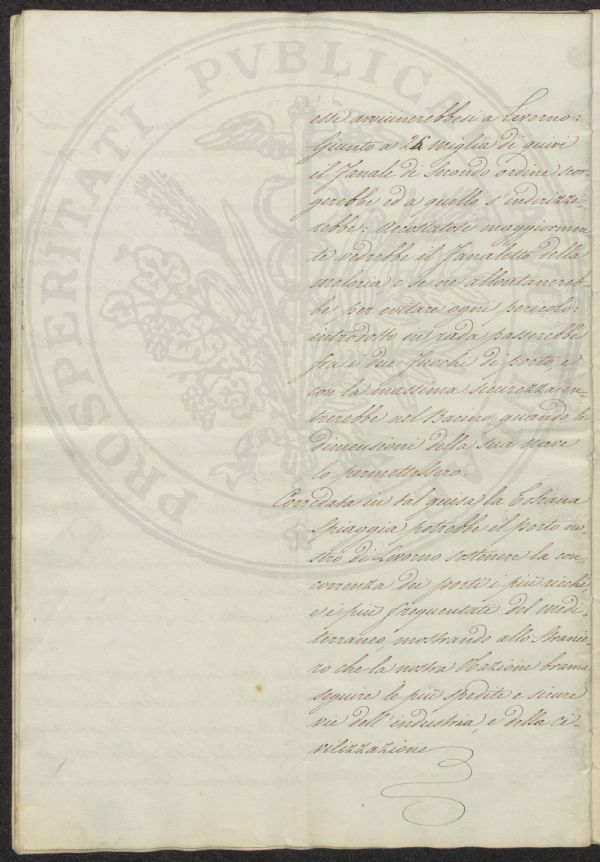 PROSPERITATI PVBLICAE
esse avvicinerebbesi a Livorno:
Giunto a 24 miglia di quivi
il Fanale di Secondo ordine scor-
gerebbe ed a quello s'indirizze-
rebbe: Accostatosi maggiormen-
te vedrebbe il Fanaletto della
Meloria e se ne allontanereb-
be per evitare ogni pericolo:
introdotto in rada passerebbe
fra i due fuochi di porto, e
con la massima sicurezza en-
trerebbe nel Bacino, quando le
dimensioni della sua nave
lo permettessero.
Corredata in tal guisa la Toscana
Spiaggia potrebbe il porto no-
stro di Livorno sostenere la con-
correnza dei porti i più ricchi,
e i più frequentati del medi-
terraneo, mostrando allo Stranie-
ro che la nostra Nazione brama
seguire le più spedite e sicure
vie dell'industria, e della ci-
vilizzazione